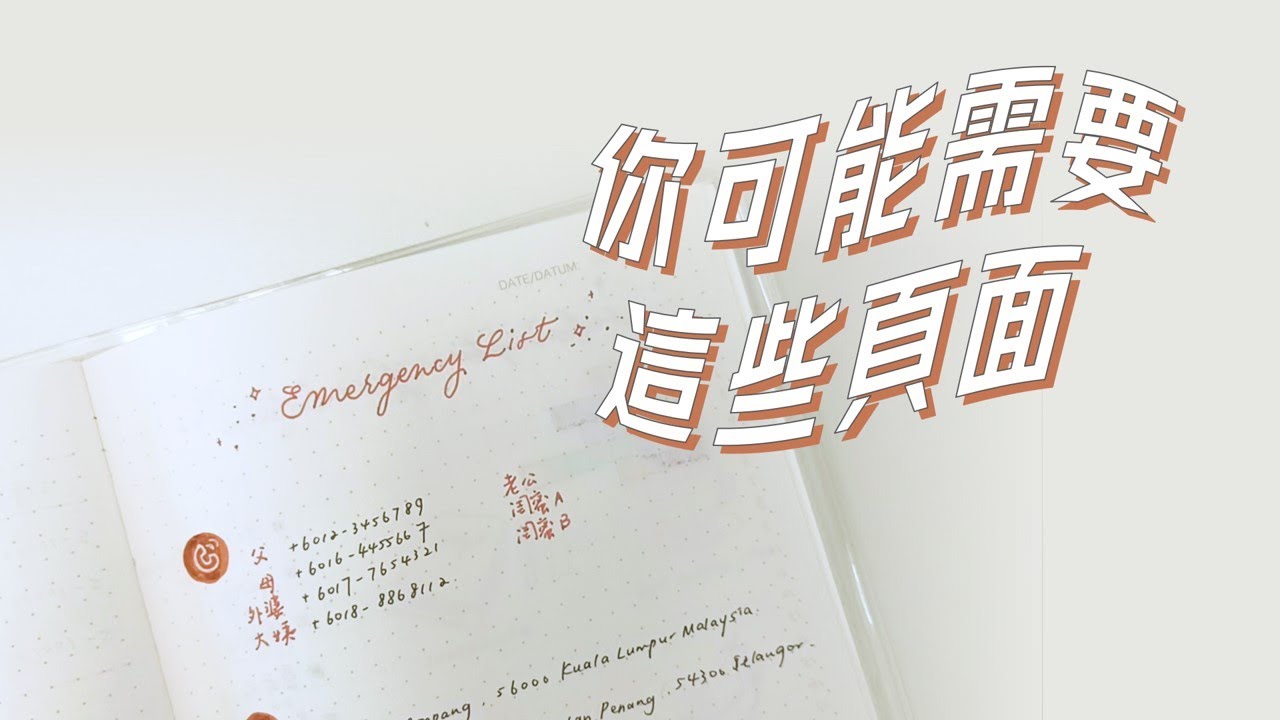 你可能需要
這些頁面
DATE/DATUM
Emergency List
父 +6012-3456789
母 +6016-4455667
外婆 +6017-7654321
大姨 +6018-8868112
老公
閨蜜 A
閨蜜 B
56000 Kuala Lumpur Malaysia.
Penang, 54300 Selangor.